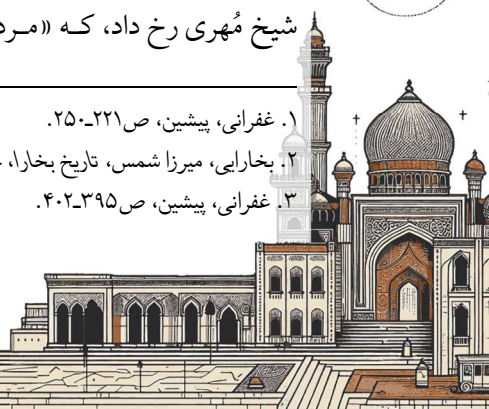 شیخ مُهری رخ داد، کـه «مـرد
۱. غفرانی، پیشین، ص۲۲۱ـ۲۵۰.
۲. بخارایی، میرزا شمس، تاریخ بخارا،
۳. غفرانی، پیشین، ص۳۹۵ـ۴۰۲.